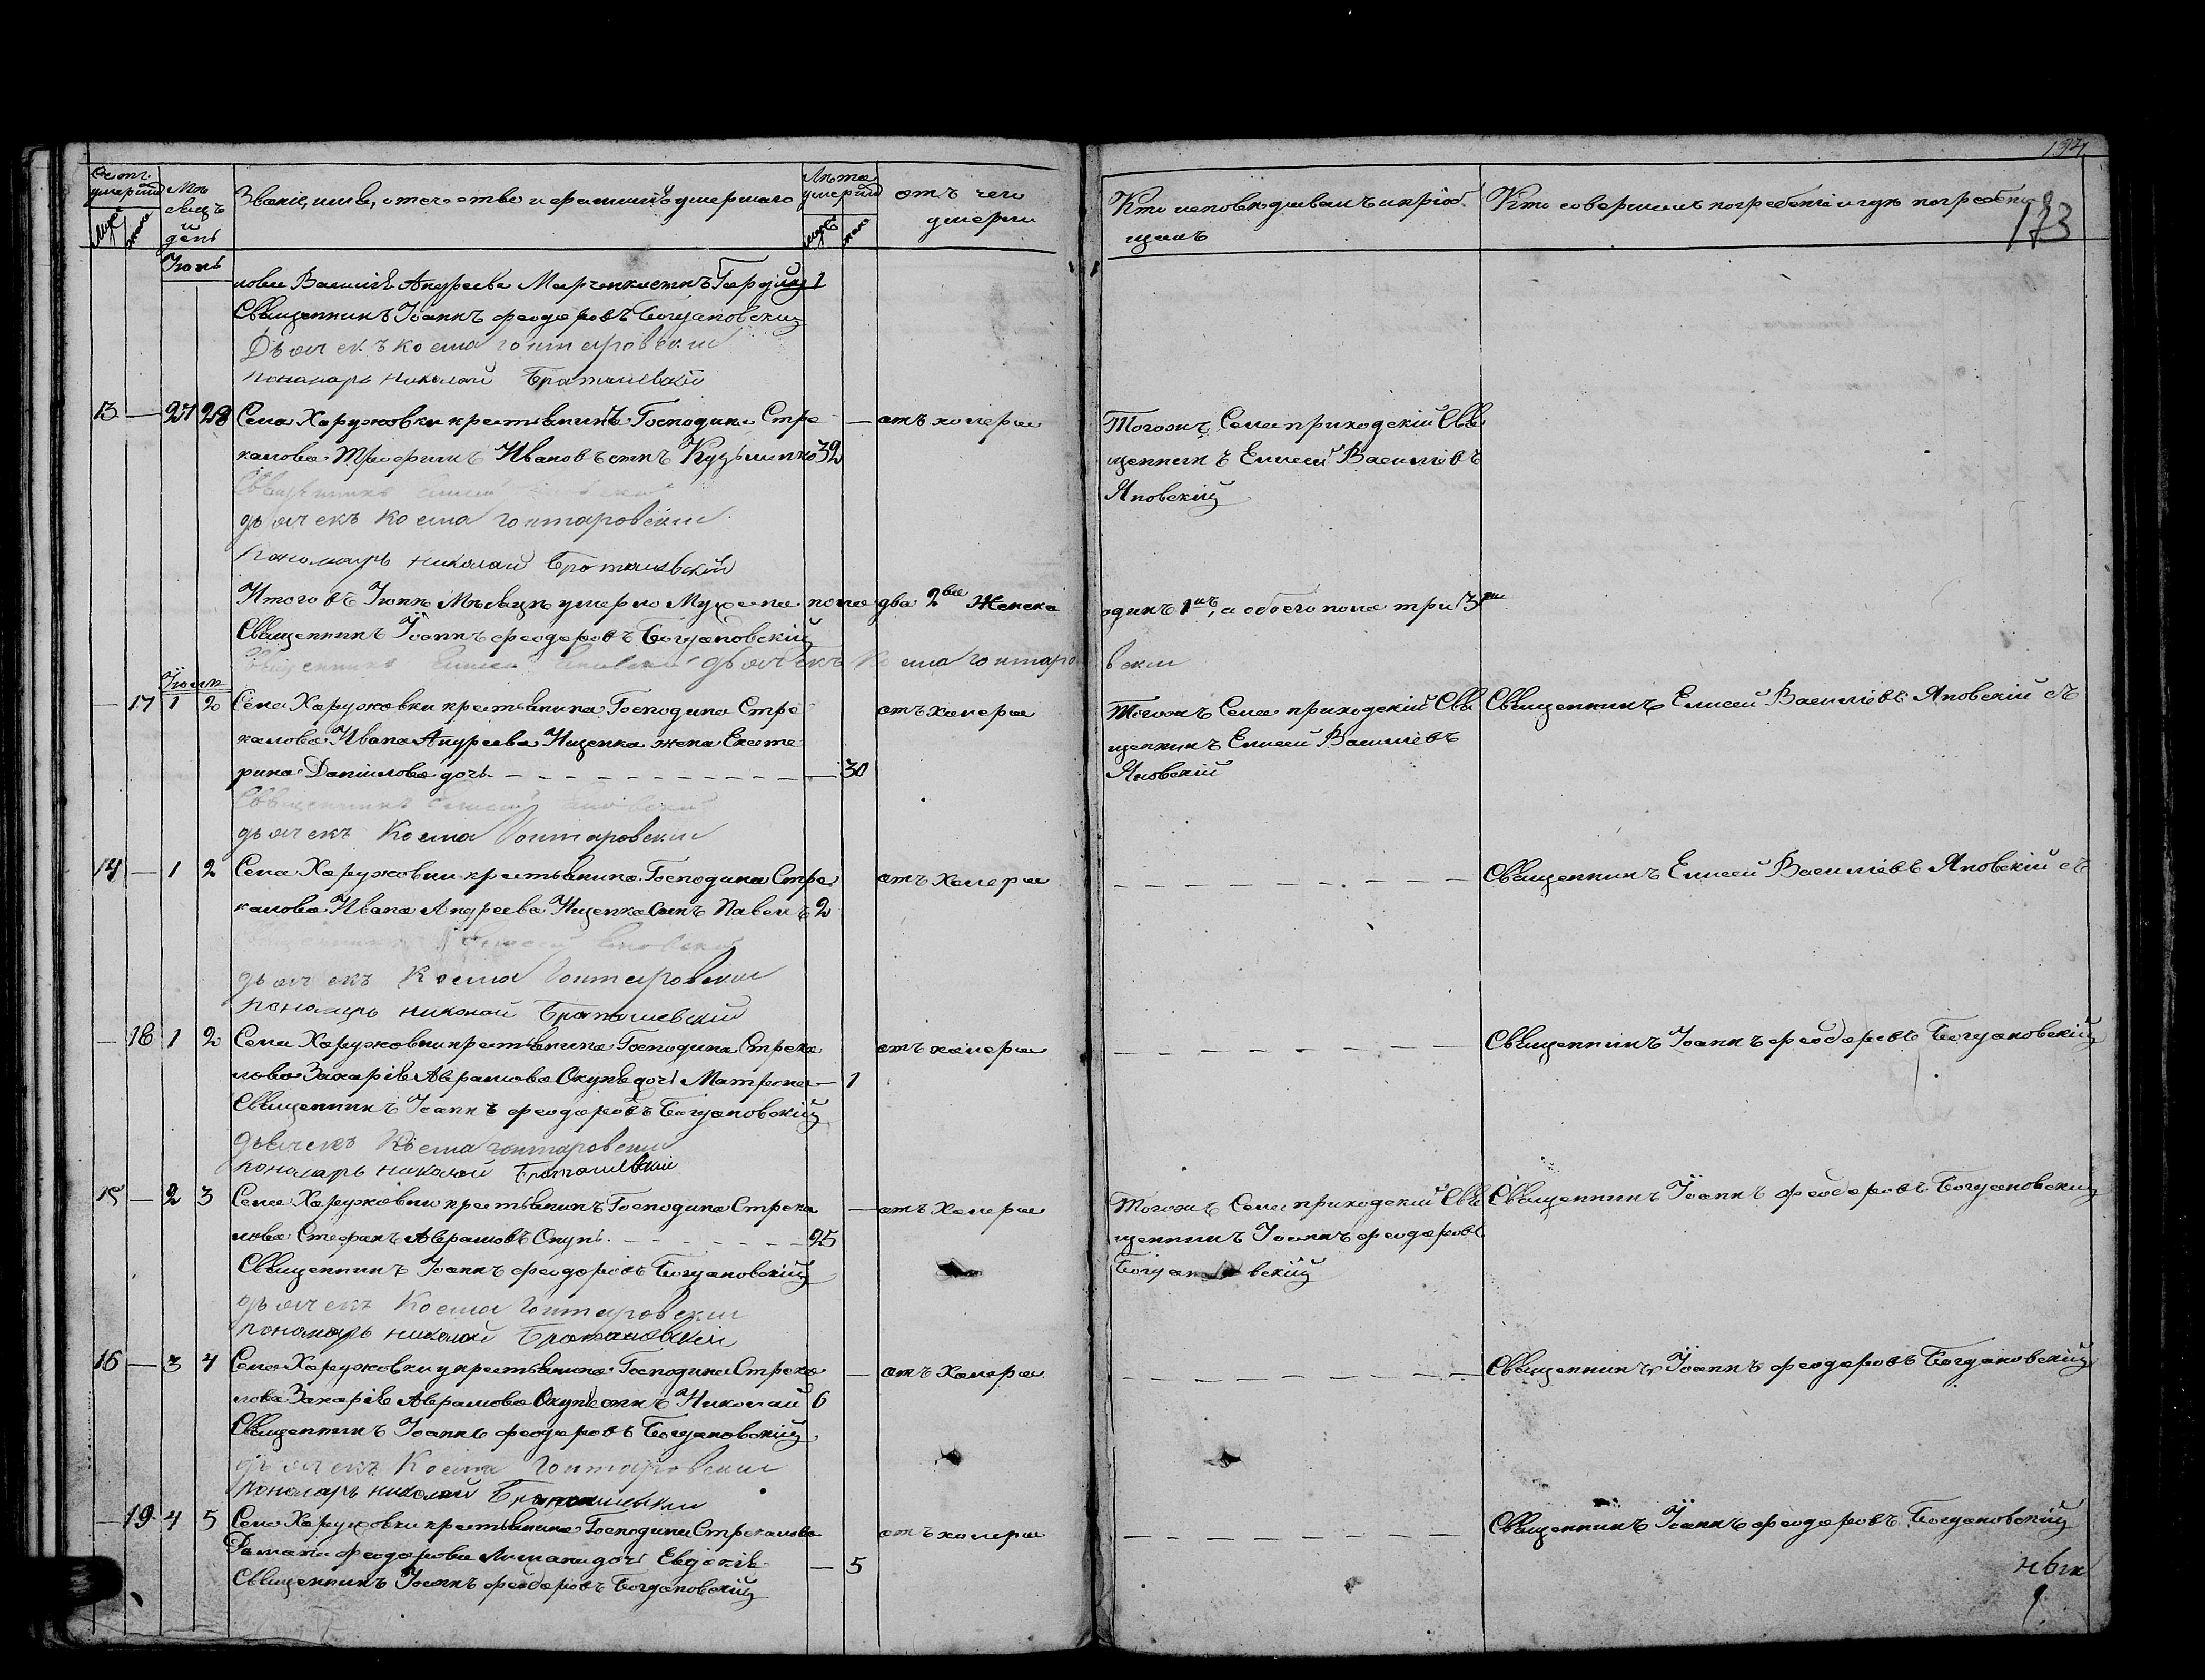 194
173
Счетъ умершихъ
Муж
жен
Мѣсяцъ и день
Званіе, имя, отечество и фамилія умершаго
Лѣта умершихъ
муж
жен
отъ чего умерли
Кто исповѣдывалъ и пріобщалъ
Кто совершилъ погребеніе и гдѣ погребены
Іюнь
лова Василія Андреева Марченка сынъ Гордій 1
Священникъ Іоаннъ Феодоровъ Богдановскій
Дьячекъ Косма Гонтаровскій
пономарь Николай Браташевскій
13 — 27 28 Села Хоружовки крестьянинъ Господина Стре — отъ холеры
калова Трофимъ Ивановъ сынъ Кузьминко 32
Тогожъ Села приходскій Свя
щенникъ Елисей Васильевъ
Яновскій
Священникъ Елисей Яновскій
дьячекъ Косма Гонтаровскій
пономарь Николай Браташевскій
Итого въ Іюнѣ Мѣсяцѣ умерло Мужеска пола два 2 Женска одинъ 1, а обоего пола три 3
Священникъ Іоаннъ Феодоровъ Богдановскій
Священникъ Елисей Яновскій дьячекъ Косма Гонтаровскій
Іюль
— 17 1 2 Села Хоружовки крестьянина Господина Стре отъ холеры
калова Ивана Андреева Ищенка жена Екате
рина Даніилова дочь — 30
Тогожъ Села приходскій Свя
щенникъ Елисей Васильевъ
Яновскій
Священникъ Елисей Васильевъ Яновскій съ
Священникъ Елисей Яновскій
дьячекъ Косма Гонтаровскій
14 — 1 2 Села Хоружовки крестьянина Господина Стре отъ Холеры
калова Ивана Андреева Ищенка Сынъ Павелъ 2
Священникъ Елисей Васильевъ Яновскій съ
Священникъ Елисей Яновскій
дьячекъ Косма Гонтаровскій
пономарь Николай Браташевскій
— 18 1 2 Села Хоружовки крестьянина Господина Стрека отъ холеры
лова Захарія Аврамова Окуня дочь Матрона — 1
Священникъ Іоаннъ Феодоровъ Богдановскій
Священникъ Іоаннъ Феодоровъ Богдановскій
дьячекъ Косма Гонтаровскій
пономарь Николай Браташевскій
15 — 2 3 Села Хоружовки крестьянинъ Господина Стрека — отъ Холеры
лова Стефанъ Аврамовъ Окунь 25
Тогожъ Села приходскій Свя
щенникъ Іоаннъ Феодоровъ
Богдановскій
Священникъ Іоаннъ Феодоровъ Богдановскій
Священникъ Іоаннъ Феодоровъ Богдановскій
дьячекъ Косма Гонтаровскій
пономарь Николай Браташевскій
16 — 3 4 Села Хоружовки у крестьянина Господина Стрека — отъ Холеры
лова Захарія Аврамова Окуня сынъ Николай 6
Священникъ Іоаннъ Феодоровъ Богдановскій
Священникъ Іоаннъ Феодоровъ Богдановскій
дьячекъ Косма Гонтаровскій
пономарь Николай Браташевскій
— 19 4 5 Села Хоружовки крестьянина Господина Стрекалова отъ холеры
Романа Феодорова Лимана дочь Евдокія — 5
Священникъ Іоаннъ Феодоровъ Богдановскій
Священникъ Іоаннъ Феодоровъ Богдановскій